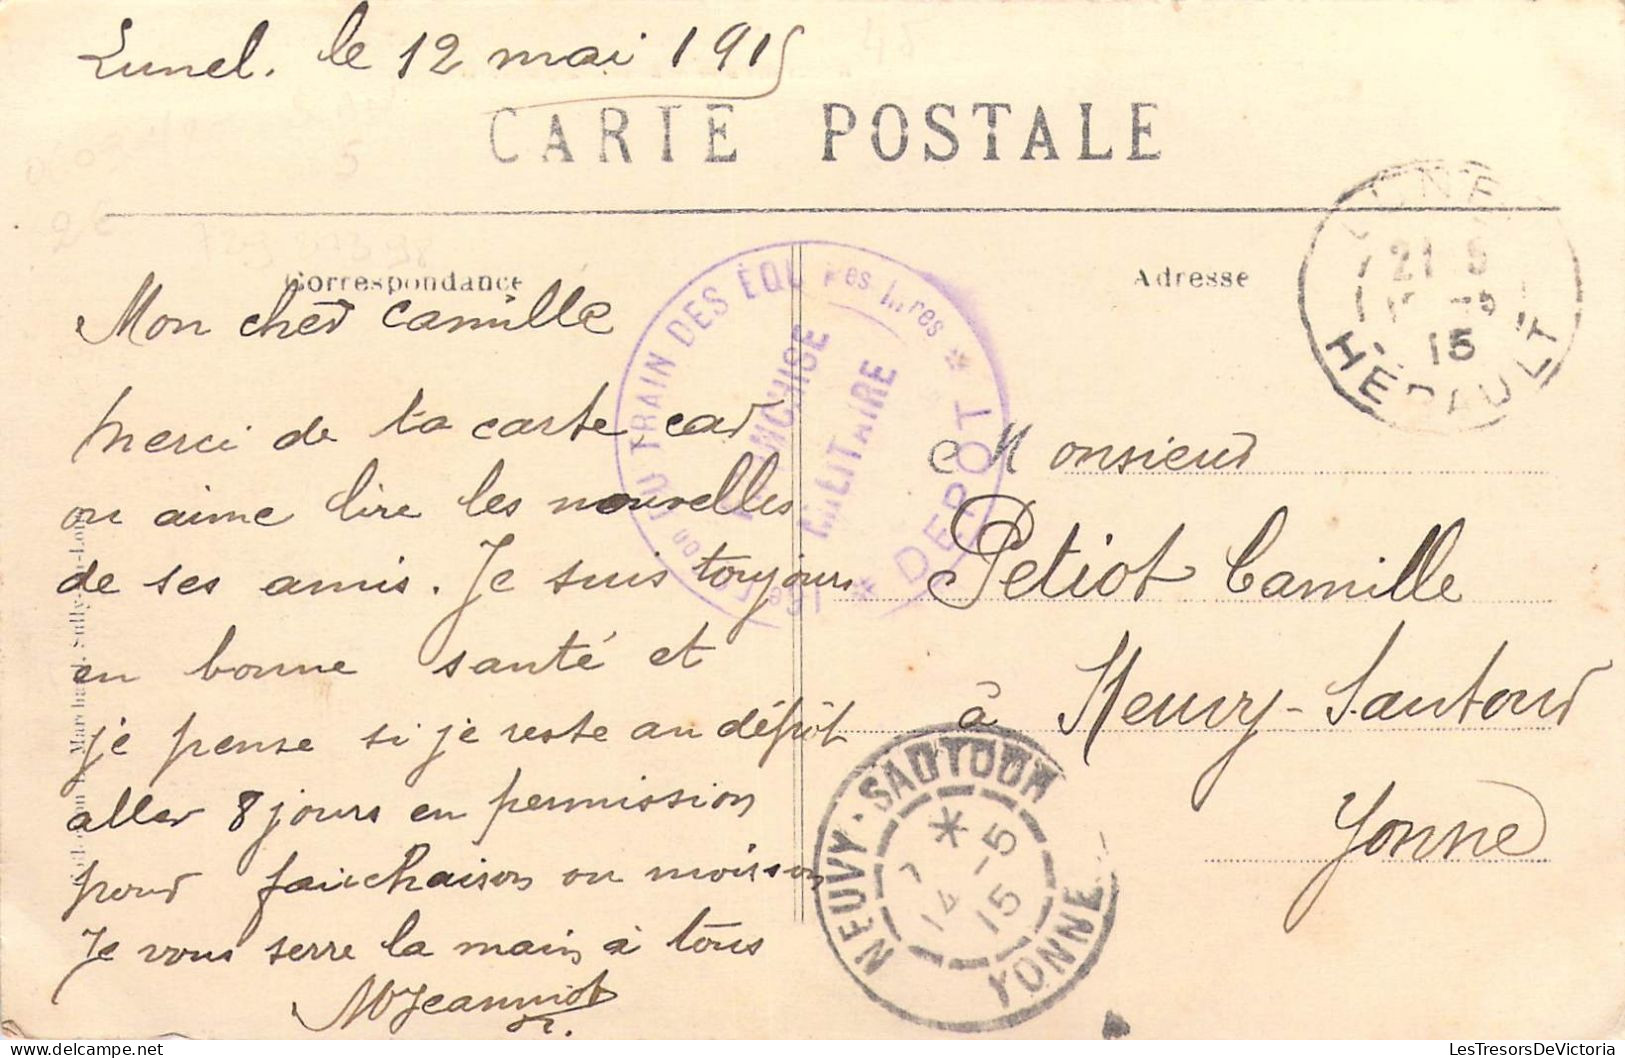 Lunel. le 12 mai 1915
CARTE POSTALE
Correspondance
Adresse
Mon cher Camille
Merci de ta carte car
on aime lire les nouvelles
de ses amis. Je suis toujours
en bonne santé et
je pense si je reste au dépôt
aller 8 jours en permission
pour fauchaison ou moisson
Je vous serre la main à tous
MJeanniot
Monsieur
Petiot Camille
à Neuvy-Sautour
Yonne
DU TRAIN DES ÉQU Pes Mres *
FRANCHISE
MILITAIRE
* DEPOT *
LUNEL
21 5
15
HÉRAULT
NEUVY-SAUTOUR
*
14 -5
15
YONNE
LesTresorsDeVictoria